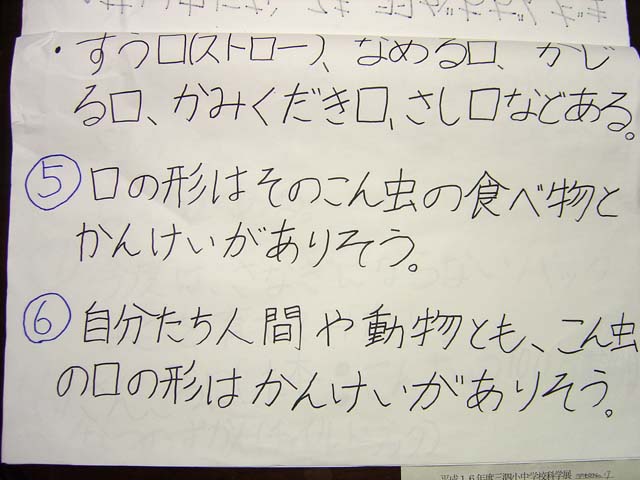 ・すう口(ストロー)、なめる口、かじ
る口、かみくだき口、さし口などある。
⑤口の形はそのこん虫の食べ物と
かんけいがありそう。
⑥自分たち人間や動物とも、こん虫
の口の形はかんけいがありそう。
平成16年度三泗小中学校科学展